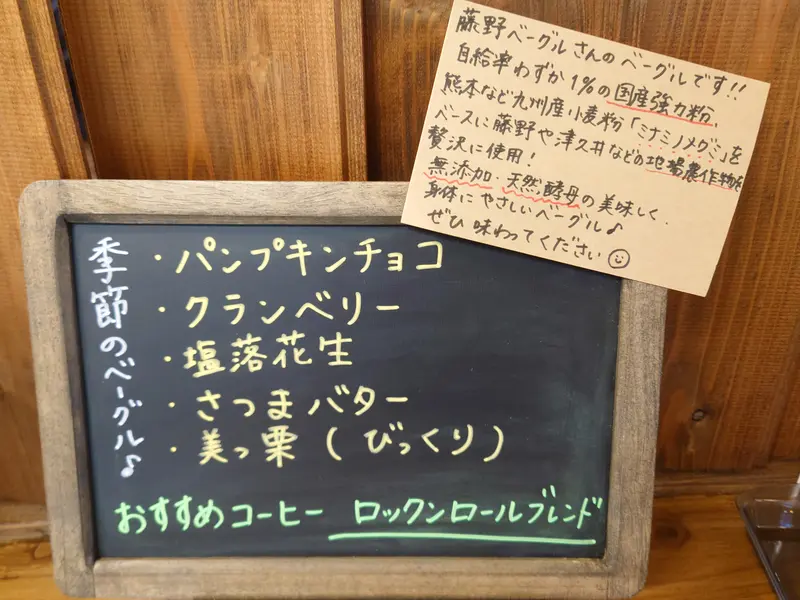 藤野ベーグルさんのベーグルです!!
自給率わずか1%の国産強力粉、
熊本など九州産小麦粉「ミナミノメグミ」を
ベースに藤野や津久井などの地場農作物を
贅沢に使用!
無添加・天然酵母の美味しく、
身体にやさしいベーグル♪
ぜひ味わってください
季節のベーグル♪
・パンプキンチョコ
・クランベリー
・塩落花生
・さつまバター
・美っ栗(びっくり)
おすすめコーヒー ロックンロールブレンド